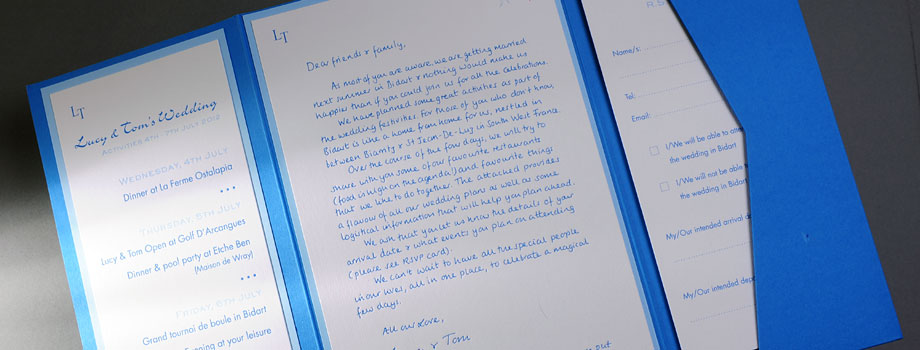 LT
Lucy & Tom's Wedding
Activities 4th - 7th July 2012
Wednesday, 4th July
Dinner at La Ferme Ostalapia
Thursday, 5th July
Lucy & Tom Open at Golf D'Arcangues
Dinner & pool party at Etche Ben
(Maison de Wray)
Friday, 6th July
Grand tournoi de boule in Bidart
at your leisure
LT
Dear friends & family,
As most of you are aware, we are getting married
next summer in Bidart & nothing would make us
happier than if you could join us for all the celebrations.
We have planned some great activities as part of
the wedding festivities. For those of you who don't know,
Bidart is like a home from home for us, nestled in
between Biarritz & St Jean-De-Luz in South West France.
Over the course of the few days, we will try to
share with you some of our favourite restaurants
(food is high on the agenda!) and favourite things
that we like to do together. The attached provides
a flavour of all our wedding plans as well as some
logistical information that will help you plan ahead.
We ask that you let us know the details of your
arrival date & what events you plan on attending
(please see RSVP card).
We can't wait to have all the special people
in our lives, all in one place, to celebrate a magical
few days.
All our love,
& Tom
out
Name/s:
Tel:
Email:
I/We will be able to
the wedding in Bidart
I/We will not be able
the wedding in Bidart
My/Our intended arrival
My/Our intended